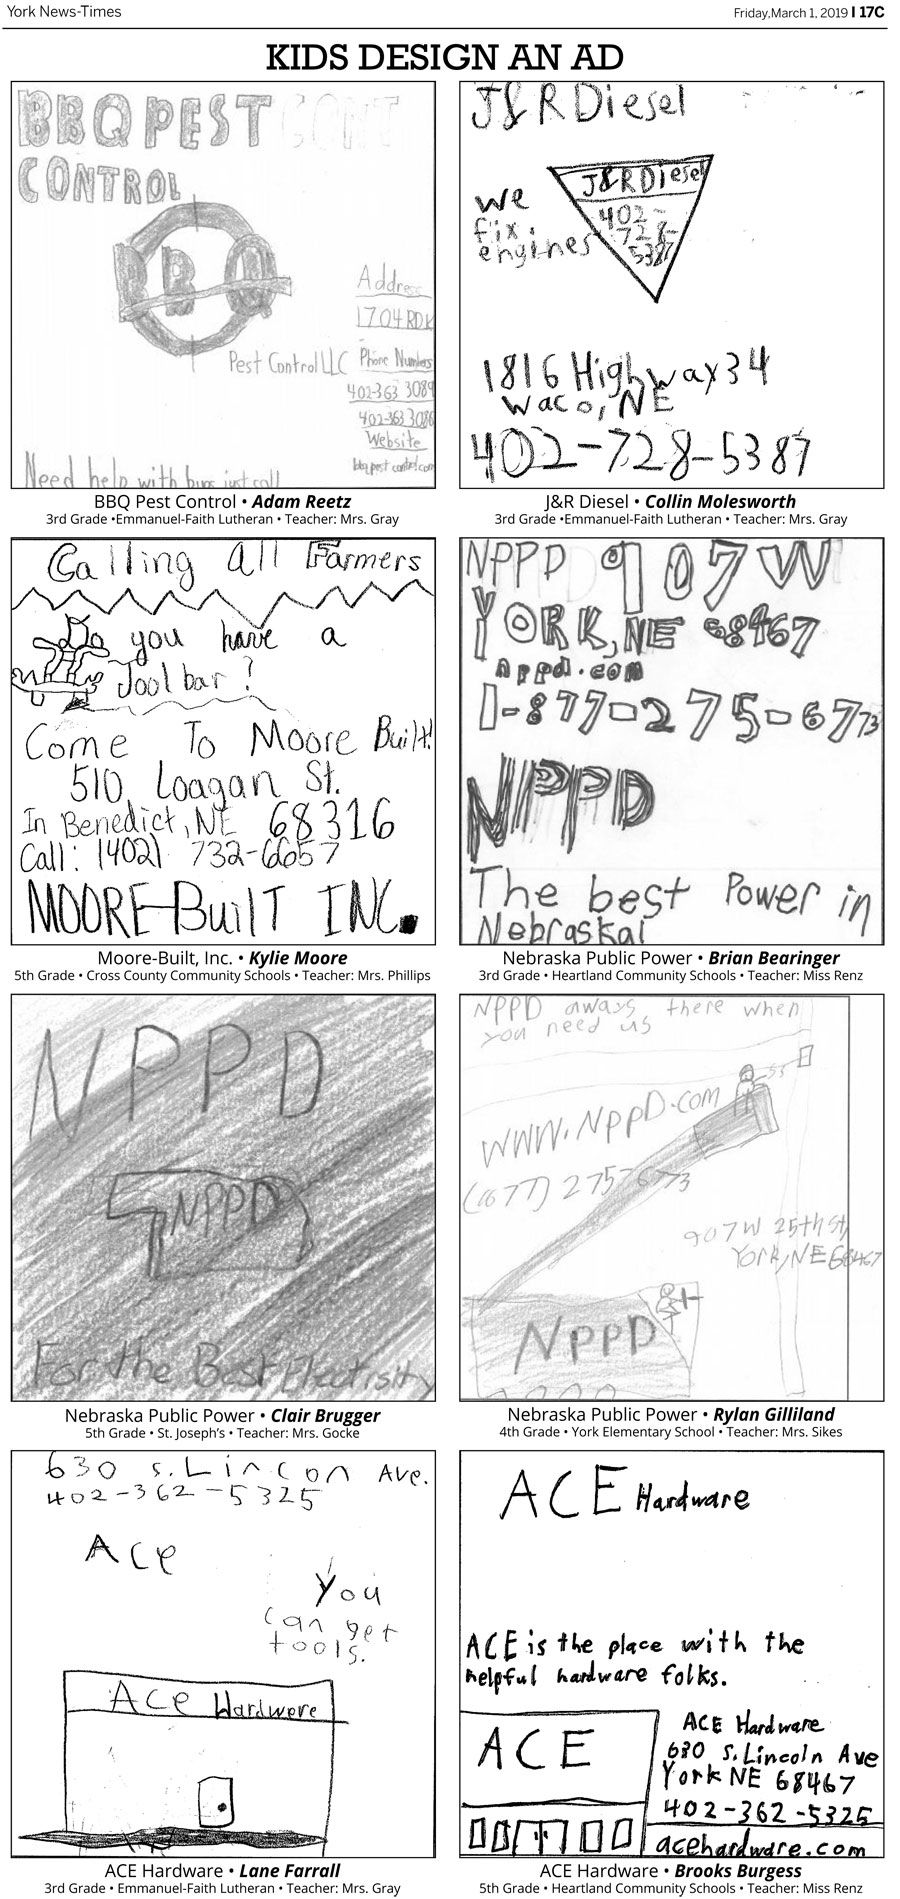 York News-Times
Friday, March 1, 2019 | 17C
KIDS DESIGN AN AD
BBQ PEST CONT
CONTROL
BBQ
Pest Control LLC
Address
1704 RD K
Phone Numbers
402-363 3089
402-363 3086
Website
bbqpest control.com
Need help with bugs just call
BBQ Pest Control • Adam Reetz
3rd Grade •Emmanuel-Faith Lutheran • Teacher: Mrs. Gray
J&R Diesel
J&R Diesel
402-
728-
5387
we
fix
engines
1816 Highway 34
Waco, NE
402-728-5387
J&R Diesel • Collin Molesworth
3rd Grade •Emmanuel-Faith Lutheran • Teacher: Mrs. Gray
Calling all Farmers
Do you have a
Tool bar?
Come To Moore Built!
510 Loagan St.
In Benedict, NE 68316
Call: (402) 732-6657
MOORE-BuilT INC.
Moore-Built, Inc. • Kylie Moore
5th Grade • Cross County Community Schools • Teacher: Mrs. Phillips
NPPD 907 W
YORK, NE 68467
nppd.com
1-877-275-6773
NPPD
The best Power in
Nebraska!
Nebraska Public Power • Brian Bearinger
3rd Grade • Heartland Community Schools • Teacher: Miss Renz
NPPD
NPPD
For the Best Electisity
Nebraska Public Power • Clair Brugger
5th Grade • St. Joseph's • Teacher: Mrs. Gocke
NPPD aways there when
you need us
WWW.NppD.com
(877) 275-6773
907 W 25th St,
York, NE 68467
NPPD
Nebraska Public Power • Rylan Gilliland
4th Grade • York Elementary School • Teacher: Mrs. Sikes
630 S. Lincon Ave.
402-362-5325
Ace
You
can get
tools.
Ace Hardwere
ACE Hardware • Lane Farrall
3rd Grade • Emmanuel-Faith Lutheran • Teacher: Mrs. Gray
ACE Hardware
ACE is the place with the
helpful hardware folks.
ACE
ACE Hardware
630 S. Lincoln Ave
York NE 68467
402-362-5325
acehardware.com
ACE Hardware • Brooks Burgess
5th Grade • Heartland Community Schools • Teacher: Miss Renz